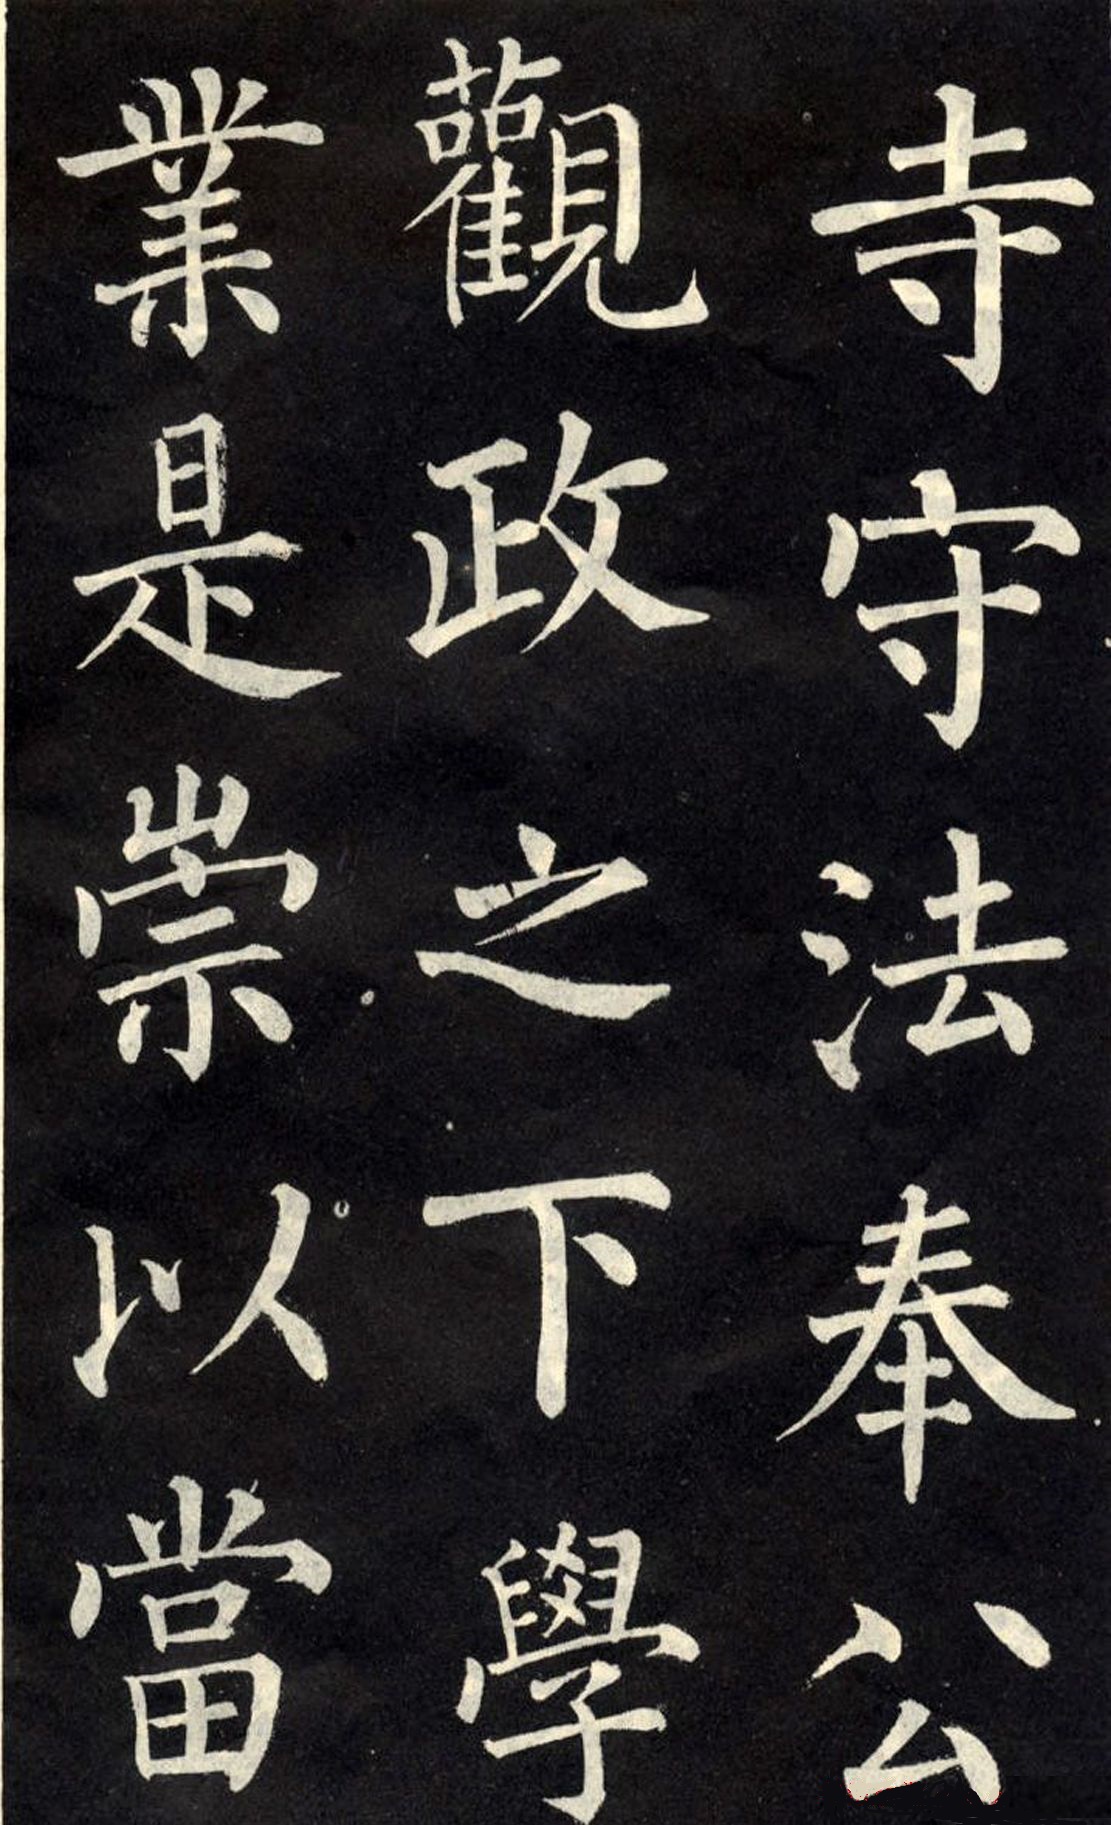 寺守法奉公
觀政之下學
業是崇以當